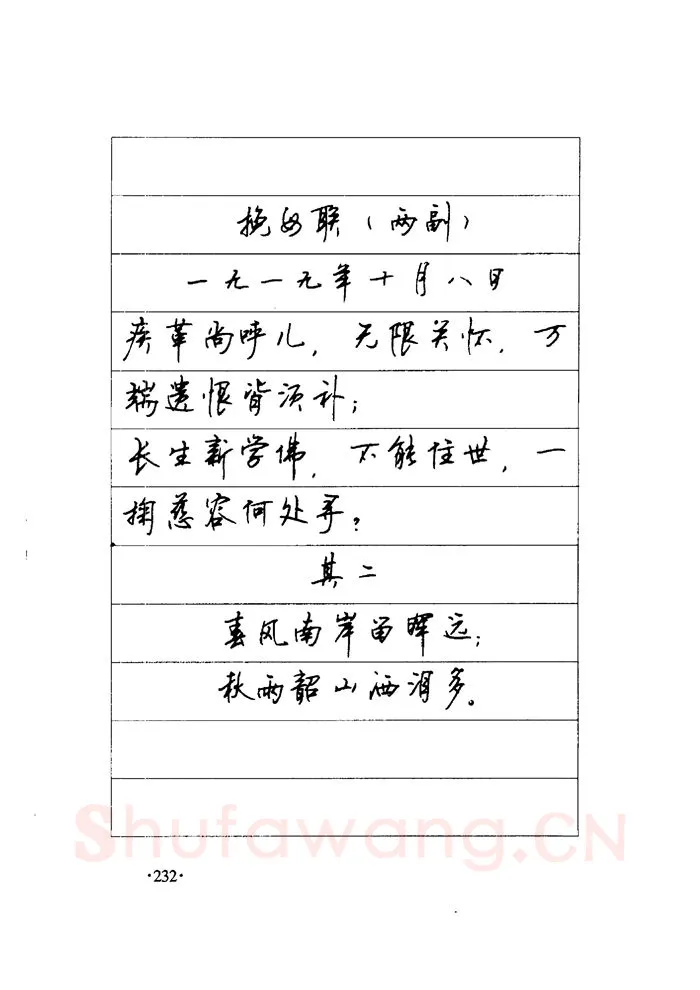 挽母联（两副）
一九一九年十月八日
疾革尚呼儿，无限关怀，万
端遗恨皆须补；
长生新学佛，不能住世，一
掬慈容何处寻？
其二
春风南岸留晖远；
秋雨韶山洒泪多。
Shufawang.CN
·232·